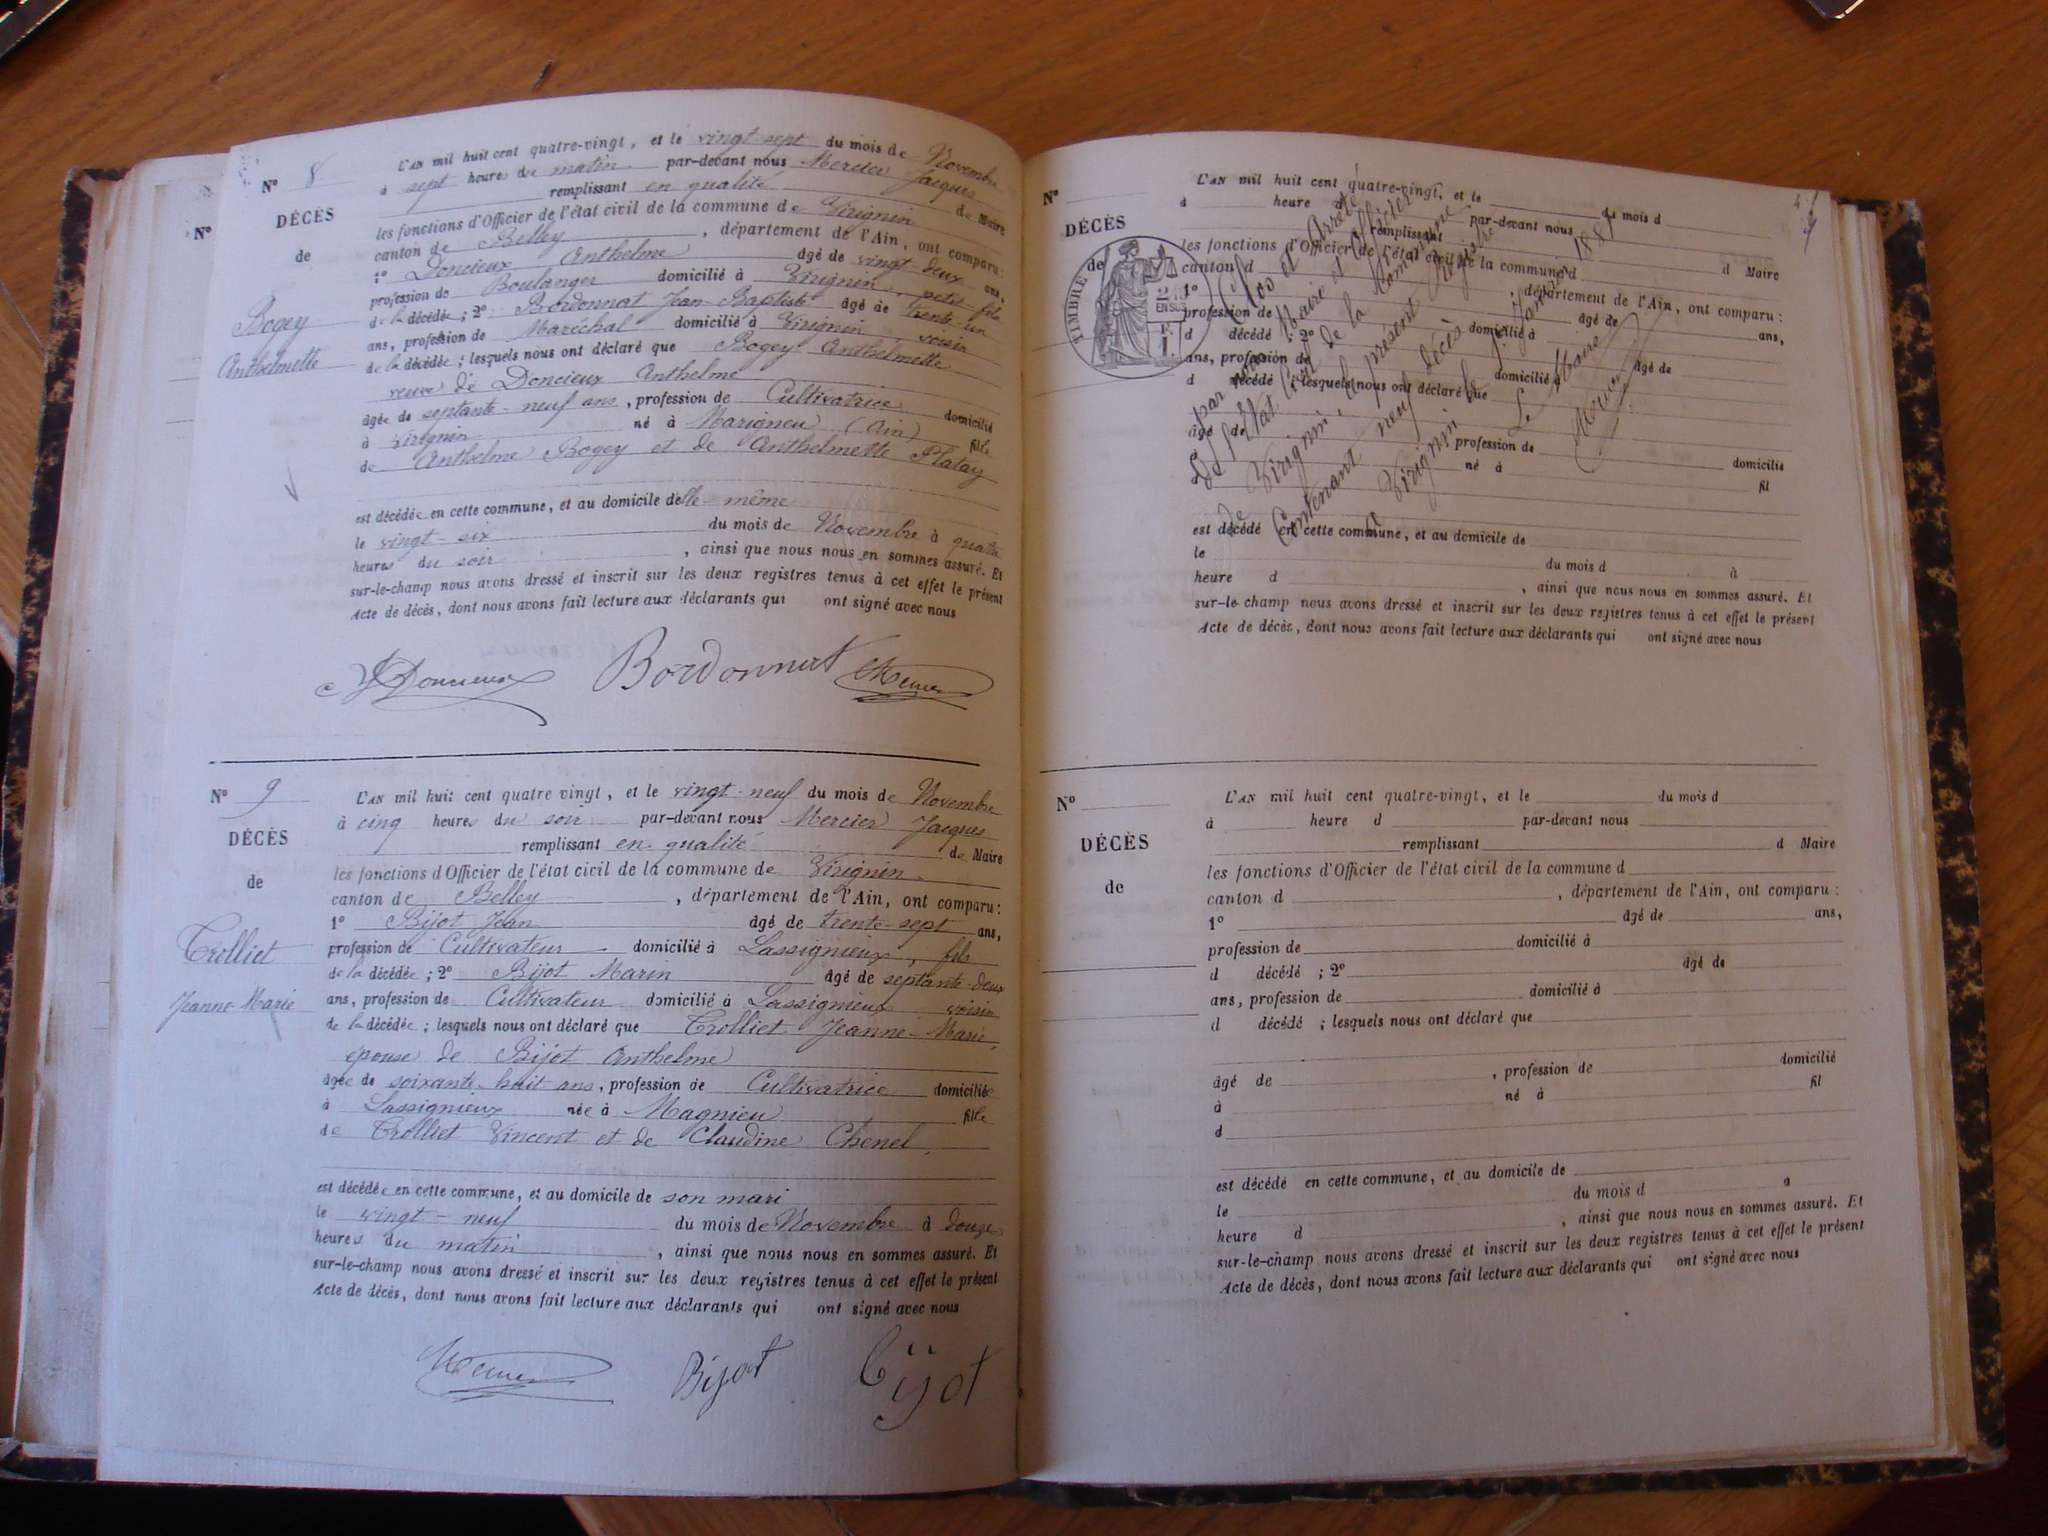 N° 8
DÉCÈS
de
Bogey
Anthelmette
L'AN mil huit cent quatre-vingt, et le vingt-sept du mois de Novembre
à sept heures du matin par-devant nous Mercier Jacques
remplissant en qualité de Maire
les fonctions d'Officier de l'état civil de la commune de Virignin
canton de Belley, département de l'Ain, ont comparu :
1° Doncieux Anthelme âgé de vingt-deux ans,
profession de Boulanger domicilié à Virignin, petit-fils
de la décédée ; 2° Bordonnat Jean-Baptiste âgé de trente-un
ans, profession de Maréchal domicilié à Virignin voisin
de la décédée ; lesquels nous ont déclaré que Bogey Anthelmette
veuve de Doncieux Anthelme
âgée de septante-neuf ans, profession de Cultivatrice domicilié
à Virignin né à Marigneu (Ain) fille
de Anthelme Bogey et de Anthelmette Platay
est décédée en cette commune, et au domicile de le même
le vingt-six du mois de Novembre à quatre
heures du soir, ainsi que nous nous en sommes assuré. Et
sur-le-champ nous avons dressé et inscrit sur les deux registres tenus à cet effet le présent
Acte de décès, dont nous avons fait lecture aux déclarants qui ont signé avec nous
Doncieux Bordonnat Mercier
N° 9
DÉCÈS
de
Trolliet
Jeanne-Marie
L'AN mil huit cent quatre vingt, et le vingt-neuf du mois de Novembre
à cinq heures du soir par-devant nous Mercier Jacques
remplissant en qualité de Maire
les fonctions d'Officier de l'état civil de la commune de Virignin
canton de Belley, département de l'Ain, ont comparu :
1° Bijot Jean âgé de trente-sept ans,
profession de Cultivateur domicilié à Lassignieux, fils
de la décédée ; 2° Bijot Marin âgé de septante-deux
ans, profession de Cultivateur domicilié à Lassignieux voisin
de la décédée ; lesquels nous ont déclaré que Trolliet Jeanne-Marie,
épouse de Bijot Anthelme
âgée de soixante-huit ans, profession de Cultivatrice domiciliée
à Lassignieux née à Magnieu fille
de Trolliet Vincent et de Claudine Chenel,
est décédée en cette commune, et au domicile de son mari
le vingt-neuf du mois de Novembre à douze
heures du matin, ainsi que nous nous en sommes assuré. Et
sur-le-champ nous avons dressé et inscrit sur les deux registres tenus à cet effet le présent
Acte de décès, dont nous avons fait lecture aux déclarants qui ont signé avec nous
Mercier Bijot Bijot
N°
DÉCÈS
de
TIMBRE
L'AN mil huit cent quatre-vingt, et le du mois d
à heure d par-devant nous
remplissant d Maire
les fonctions d'Officier de l'état civil de la commune d
canton d département de l'Ain, ont comparu :
1° âgé de ans,
profession de domicilié à
d décédé ; 2° âgé de
ans, profession de domicilié à
d décédé ; lesquels nous ont déclaré que
âgé de profession de domicilié
né à fil
d
est décédé en cette commune, et au domicile de
le du mois d à
heure d, ainsi que nous nous en sommes assuré. Et
sur-le-champ nous avons dressé et inscrit sur les deux registres tenus à cet effet le présent
Acte de décès, dont nous avons fait lecture aux déclarants qui ont signé avec nous
Clos et Arrêté
par nous Maire et Officier
de l'état civil de la Commune
de Virignin, le présent Registre
Contenant neuf décès
à Virignin le Janvier 1881
Le Maire
Mercier
N°
DÉCÈS
de
L'AN mil huit cent quatre-vingt, et le du mois d
à heure d par-devant nous
remplissant d Maire
les fonctions d'Officier de l'état civil de la commune d
canton d, département de l'Ain, ont comparu :
1° âgé de ans,
profession de domicilié à
d décédé ; 2° âgé de
ans, profession de domicilié à
d décédé ; lesquels nous ont déclaré que
âgé de, profession de domicilié
à né à fil
d
est décédé en cette commune, et au domicile de
le du mois d à
heure d, ainsi que nous nous en sommes assuré. Et
sur-le-champ nous avons dressé et inscrit sur les deux registres tenus à cet effet le présent
Acte de décès, dont nous avons fait lecture aux déclarants qui ont signé avec nous